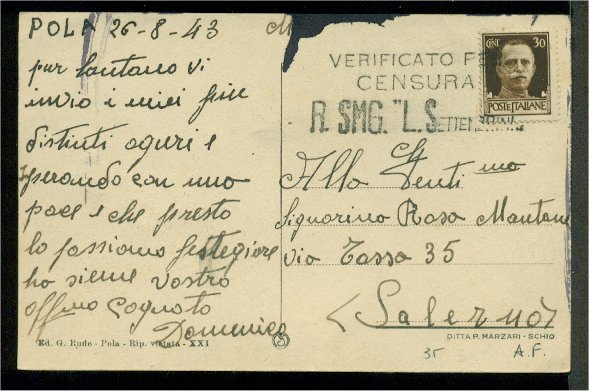 POLA 26-8-43
pur lontano vi
invio i miei fini
distinti aguri e
sperando con una
pace e che presto
lo possiamo festegiare
ho sieme vostro
affmo Cognato
Domenico
Ed. G. Rude - Pola - Rip. vietata - XXI
3
VERIFICATO PER
CENSURA
R. SMG. "L. SETTEMBRINI
CENT. 30
POSTE ITALIANE
Alla Genti ma
Signorina Rosa Mantone
via Tasso 35
(Salerno)
DITTA P. MARZARI - SCHIO
35 A.F.